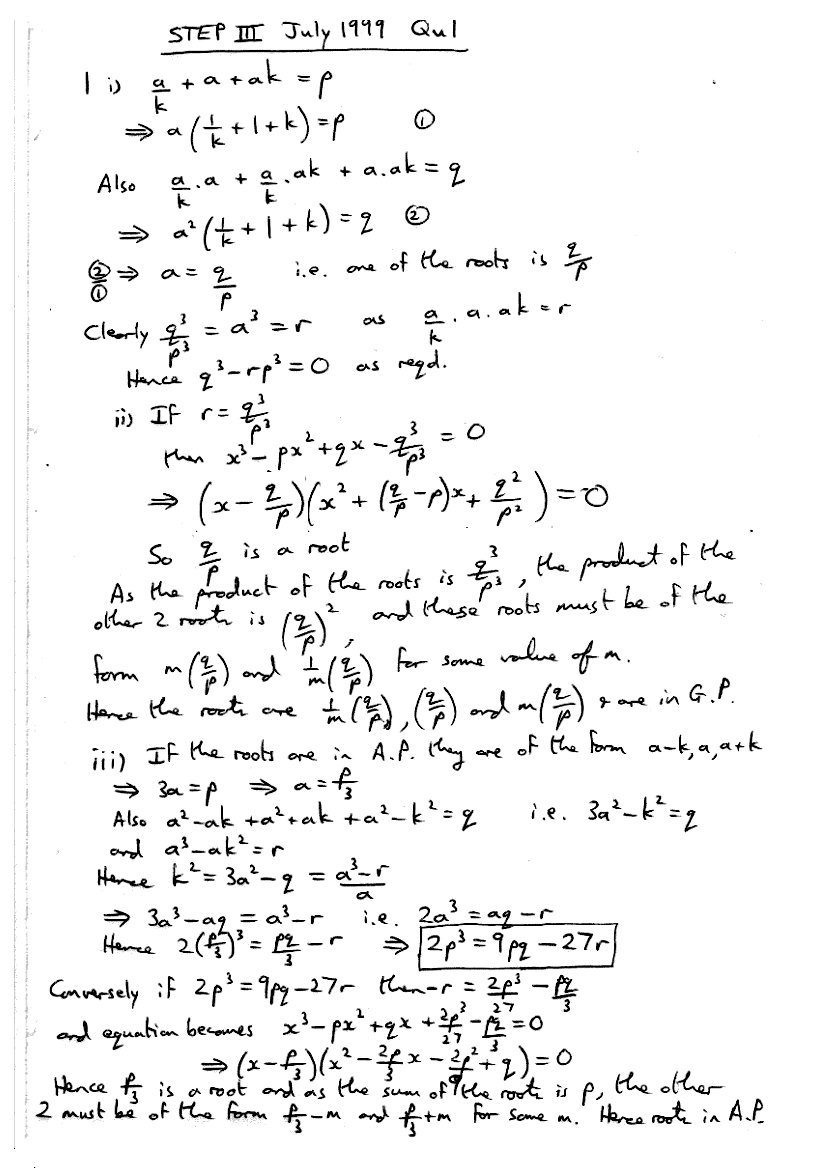 STEP III July 1999 Qu1
1 i) a/k + a + ak = p
⇒ a(1/k + 1 + k) = p ①
Also a/k . a + a/k . ak + a.ak = q
⇒ a²(1/k + 1 + k) = q ②
②/① ⇒ a = q/p i.e. one of the roots is q/p
Clearly q³/p³ = a³ = r as a/k . a. ak = r
Hence q³ - rp³ = 0 as reqd.
ii) If r = q³/p³
then x³ - px² + qx - q³/p³ = 0
⇒ (x - q/p)(x² + (q/p - p)x + q²/p²) = 0
So q/p is a root
As the product of the roots is q³/p³, the product of the
other 2 roots is (q/p)², and these roots must be of the
form m(q/p) and 1/m(q/p) for some value of m.
Hence the roots are 1/m(q/p), (q/p) and m(q/p) & are in G.P.
iii) If the roots are in A.P. they are of the form a-k, a, a+k
⇒ 3a = p ⇒ a = p/3
Also a² - ak + a² + ak + a² - k² = q i.e. 3a² - k² = q
and a³ - ak² = r
Hence k² = 3a² - q = (a³ - r)/a
⇒ 3a³ - aq = a³ - r i.e. 2a³ = aq - r
Hence 2(p/3)³ = pq/3 - r ⇒ 2p³ = 9pq - 27r
Conversely if 2p³ = 9pq - 27r then -r = 2p³/27 - pq/3
and equation becomes x³ - px² + qx + 2p³/27 - pq/3 = 0
⇒ (x - p/3)(x² - 2p/3 x - 2p²/9 + q) = 0
Hence p/3 is a root and as the sum of the roots is p, the other
2 must be of the form p/3 - m and p/3 + m for some m. Hence roots in A.P.